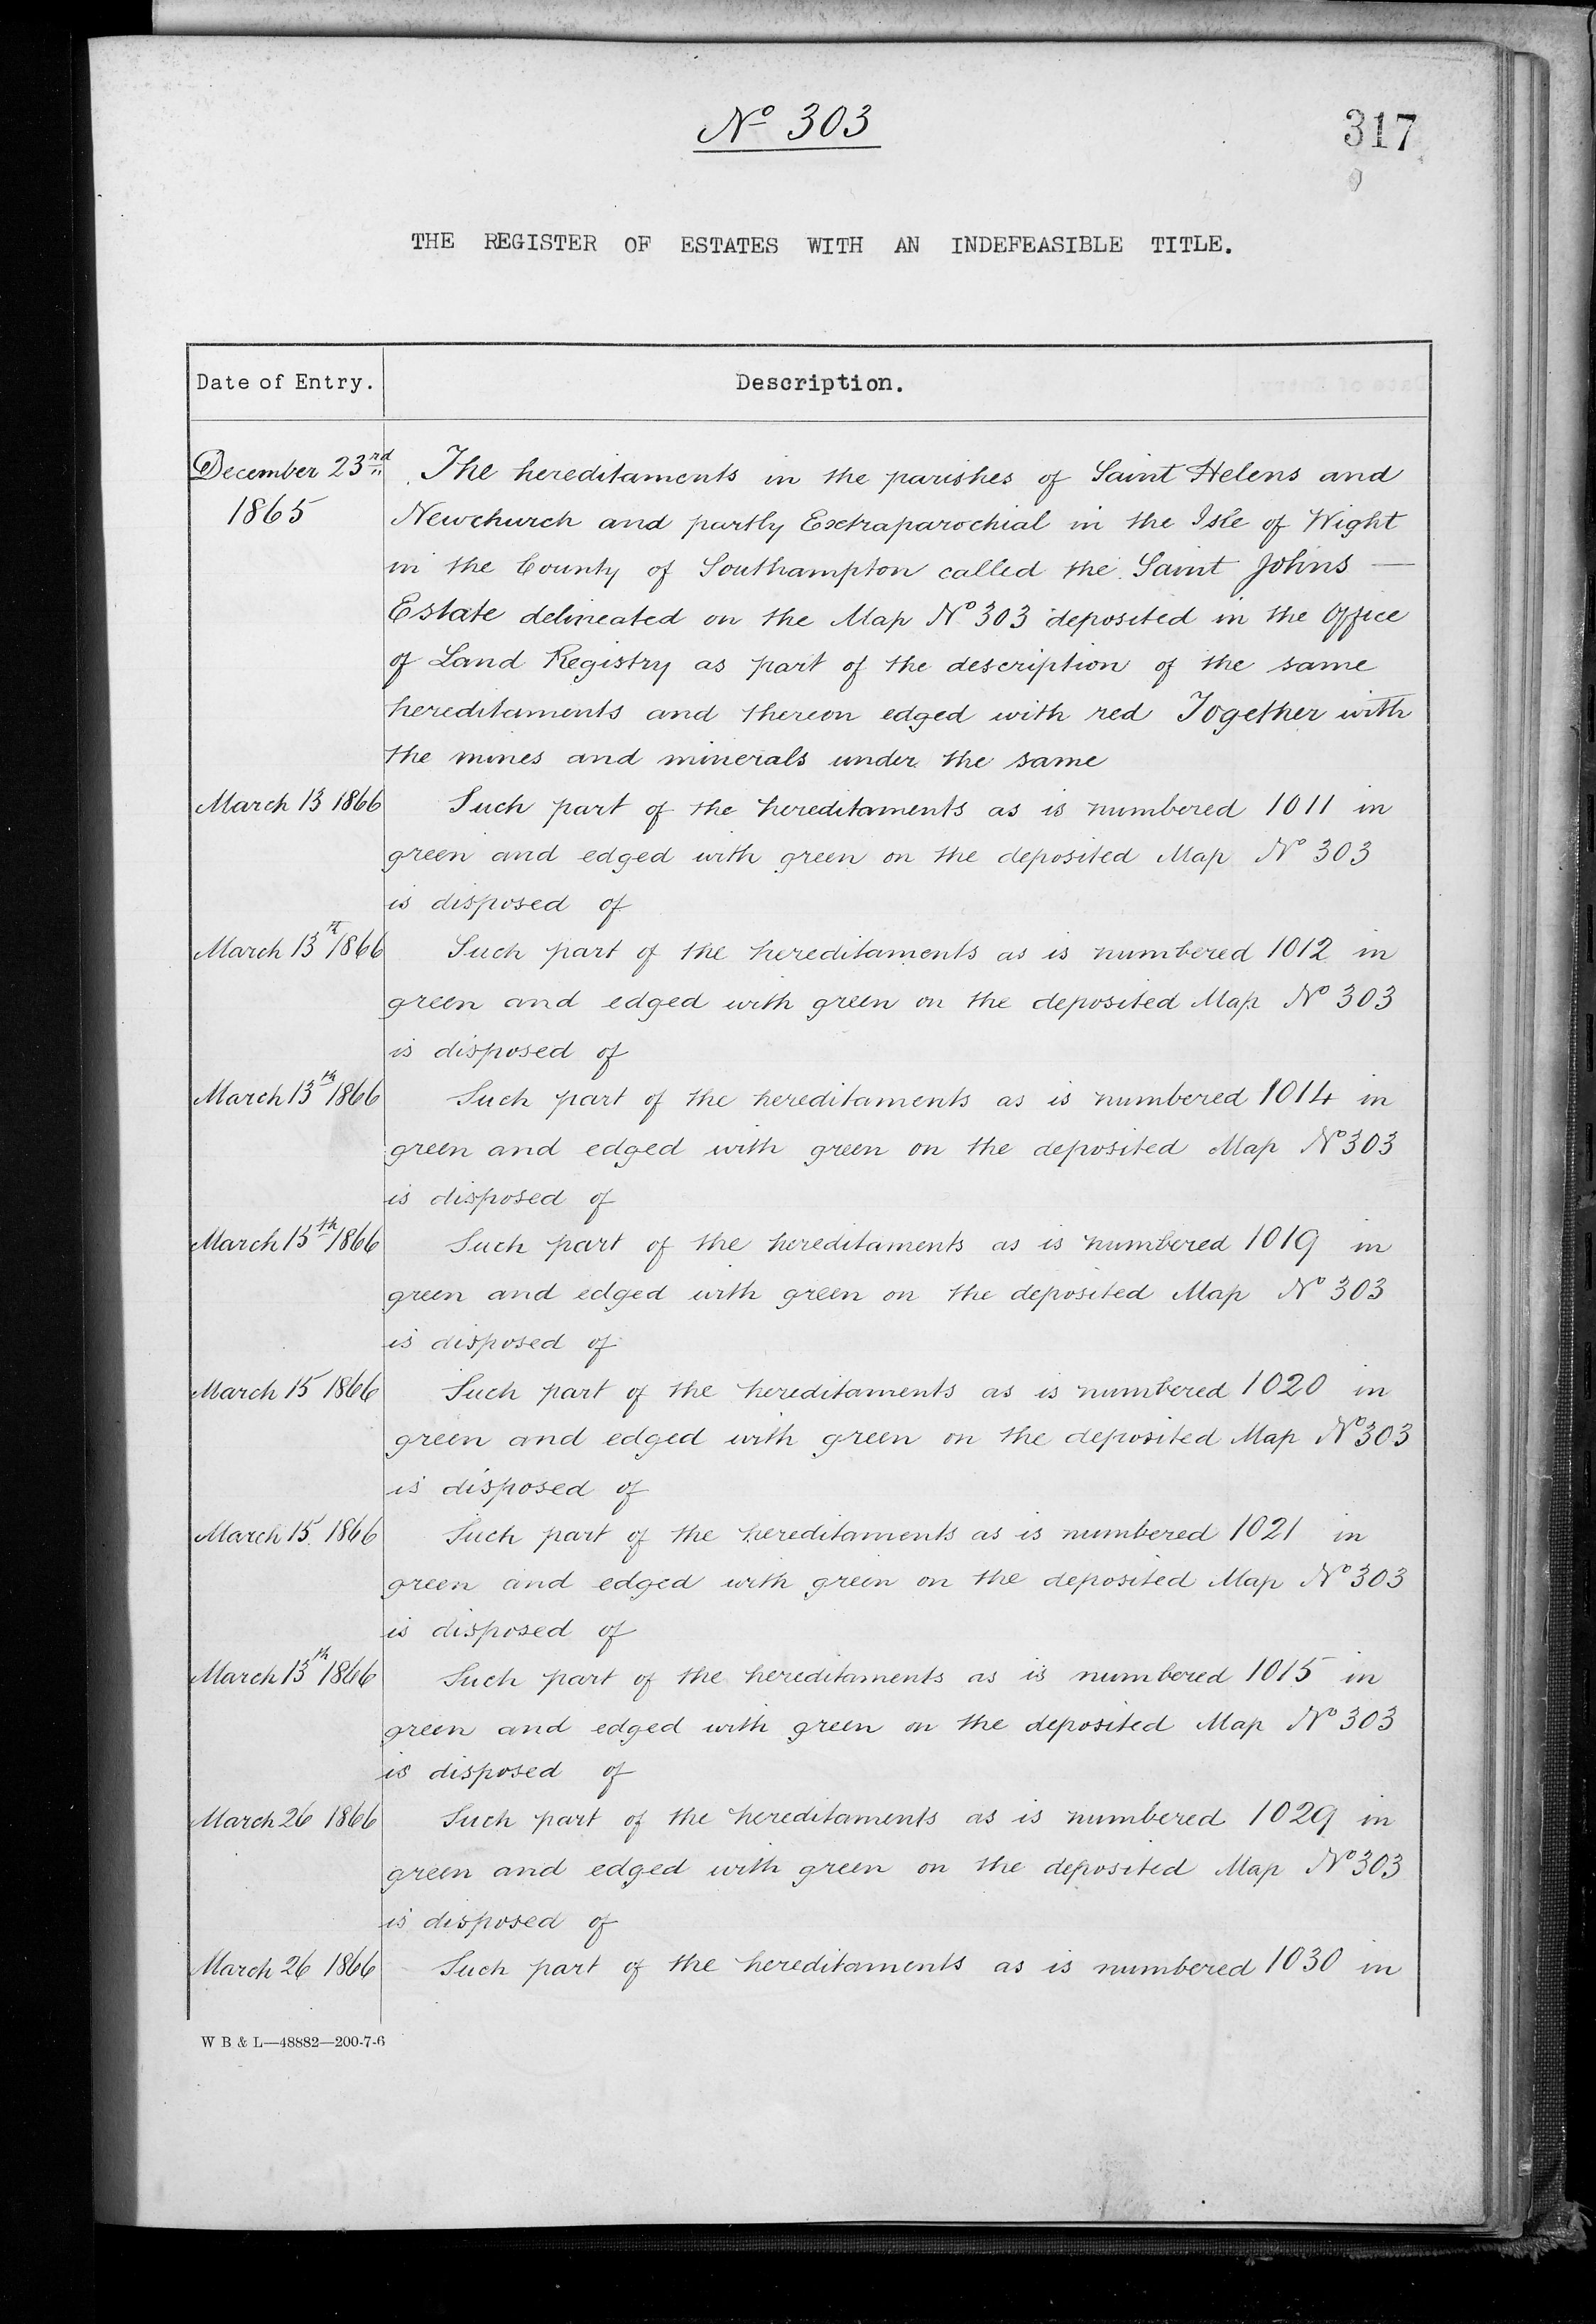 Nº 303
317
THE REGISTER OF ESTATES WITH AN INDEFEASIBLE TITLE.
Date of Entry. Description.
December 23rd The hereditaments in the parishes of Saint Helens and
1865 Newchurch and partly Extraparochial in the Isle of Wight
in the County of Southampton called the Saint Johns —
Estate delineated on the Map Nº 303 deposited in the Office
of Land Registry as part of the description of the same
hereditaments and thereon edged with red Together with
the mines and minerals under the same
March 13 1866 Such part of the hereditaments as is numbered 1011 in
green and edged with green on the deposited Map Nº 303
is disposed of
March 13th 1866 Such part of the hereditaments as is numbered 1012 in
green and edged with green on the deposited Map Nº 303
is disposed of
March 13th 1866 Such part of the hereditaments as is numbered 1014 in
green and edged with green on the deposited Map Nº 303
is disposed of
March 15th 1866 Such part of the hereditaments as is numbered 1019 in
green and edged with green on the deposited Map Nº 303
is disposed of
March 15 1866 Such part of the hereditaments as is numbered 1020 in
green and edged with green on the deposited Map Nº 303
is disposed of
March 15 1866 Such part of the hereditaments as is numbered 1021 in
green and edged with green on the deposited Map Nº 303
is disposed of
March 13th 1866 Such part of the hereditaments as is numbered 1015 in
green and edged with green on the deposited Map Nº 303
is disposed of
March 26 1866 Such part of the hereditaments as is numbered 1029 in
green and edged with green on the deposited Map Nº 303
is disposed of
March 26 1866 Such part of the hereditaments as is numbered 1030 in
W B & L—48882—200-7-6